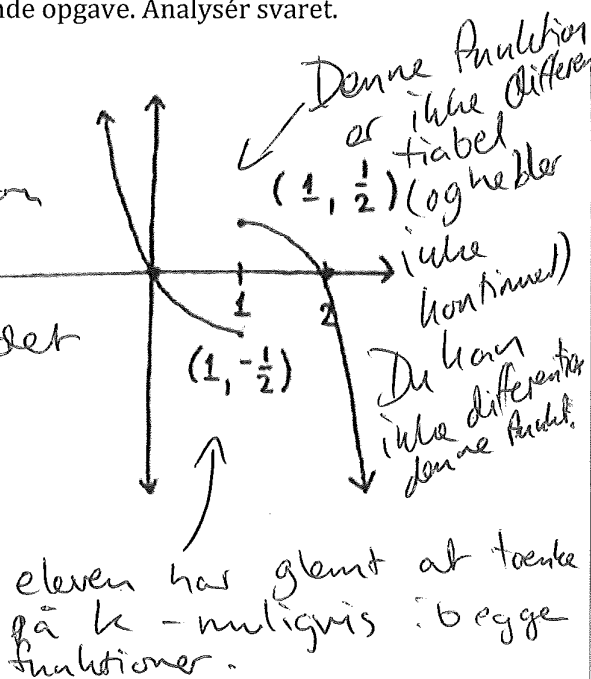 nde opgave. Analysér svaret.
Denne funktion
er ikke differen
tiabel
(1, 1/2) (og heller
ikke
kontinuert)
1
2
(1, -1/2)
Du kan
ikke differentier
denne funkt.
eleven har glemt at tænke
på k - muligvis i begge
funktioner.